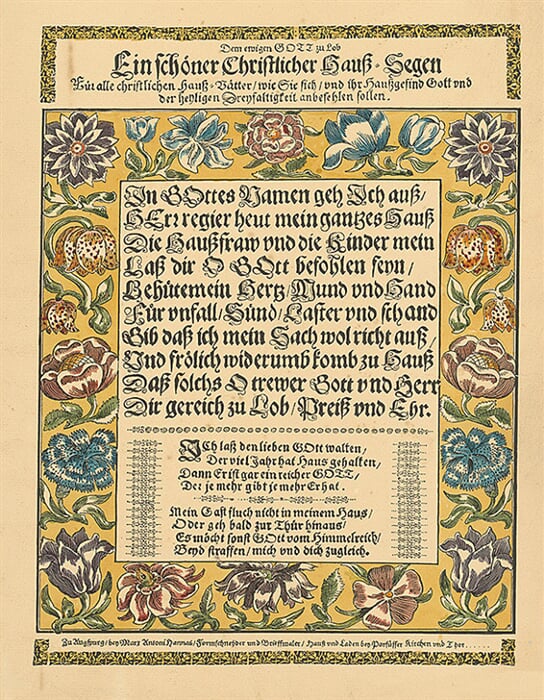 Dem ewigen GOTT zu Lob
Ein schöner Christlicher Hauß-Segen
Für alle christlichen Hauß-Vätter/wie Sie sich/und ihr Haußgesind Gott vnd
der heyligen Dreyfaltigkeit anbefehlen sollen.
In GOttes Namen geh Ich auß/
HErr regier heut mein gantzes Hauß
Die Haußfraw vnd die Kinder mein
Laß dir O GOtt befohlen seyn/
Behüte mein Hertz/Mund vnd Hand
Für vnfall/Sünd/Laster vnd schand
Gib daß ich mein Sach wol richt auß/
Und frölich widerumb komb zu Hauß
Daß solchs O trewer Gott vnd Herr
Dir gereich zu Lob/Preiß vnd Ehr.
ICh laß den lieben GOtt walten/
Der viel Jahr hat Haus gehalten/
Dann Er ist gar ein reicher GOTT/
Der je mehr gibt je mehr Er hat.
Mein Gast fluch nicht in meinem Haus/
Oder geh bald zur Thür hinaus/
Es möcht sonst GOtt vom Himmelreich/
Beyd straffen/mich vnd dich zugleich.
Zu Augspurg/bey Marx Antoni Hannas/Formschneyder und Brieffmaler/Hauß vnd Laden bey Parfüsser Kirchen vnd Thor......